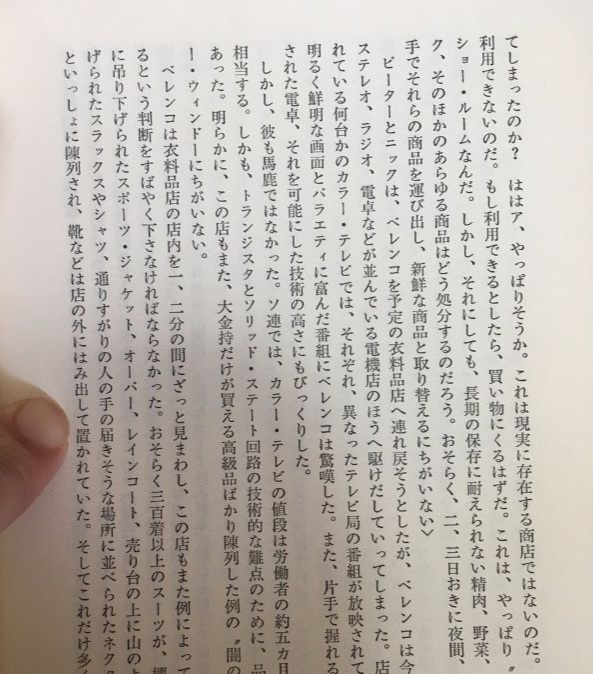 てしまったのか？　ははア、やっぱりそうか。これは現実に存在する商店ではないのだ。
利用できないのだ。もし利用できるとしたら、買い物にくるはずだ。これは、やっぱり〝
ショー・ルームなんだ。しかし、それにしても、長期の保存に耐えられない精肉、野菜、
ク、そのほかのあらゆる商品はどう処分するのだろう。おそらく、二、三日おきに夜間、
手でそれらの商品を運び出し、新鮮な商品と取り替えるにちがいない〉
ピーターとニックは、ベレンコを予定の衣料品店へ連れ戻そうとしたが、ベレンコは今
ステレオ、ラジオ、電卓などが並んでいる電機店のほうへ駆けだしていってしまった。店
れている何台かのカラー・テレビでは、それぞれ、異なったテレビ局の番組が放映されて
明るく鮮明な画面とバラエティに富んだ番組にベレンコは驚嘆した。また、片手で握れる
された電卓、それを可能にした技術の高さにもびっくりした。
しかし、彼も馬鹿ではなかった。ソ連では、カラー・テレビの値段は労働者の約五カ月
相当する。しかも、トランジスタとソリッド・ステート回路の技術的な難点のために、品
あった。明らかに、この店もまた、大金持だけが買える高級品ばかり陳列した例の〝闇の
ー・ウィンドーにちがいない。
ベレンコは衣料品店の店内を一、二分の間にざっと見まわし、この店もまた例によって
るという判断をすばやく下さなければならなかった。おそらく三百着以上のスーツが、
に吊り下げられたスポーツ・ジャケット、オーバー、レインコート、売り台の上に山のよ
げられたスラックスやシャツ、通りすがりの人の手の届きそうな場所に並べられたネクタ
といっしょに陳列され、靴などは店の外にはみ出して置かれていた。そしてこれだけ多